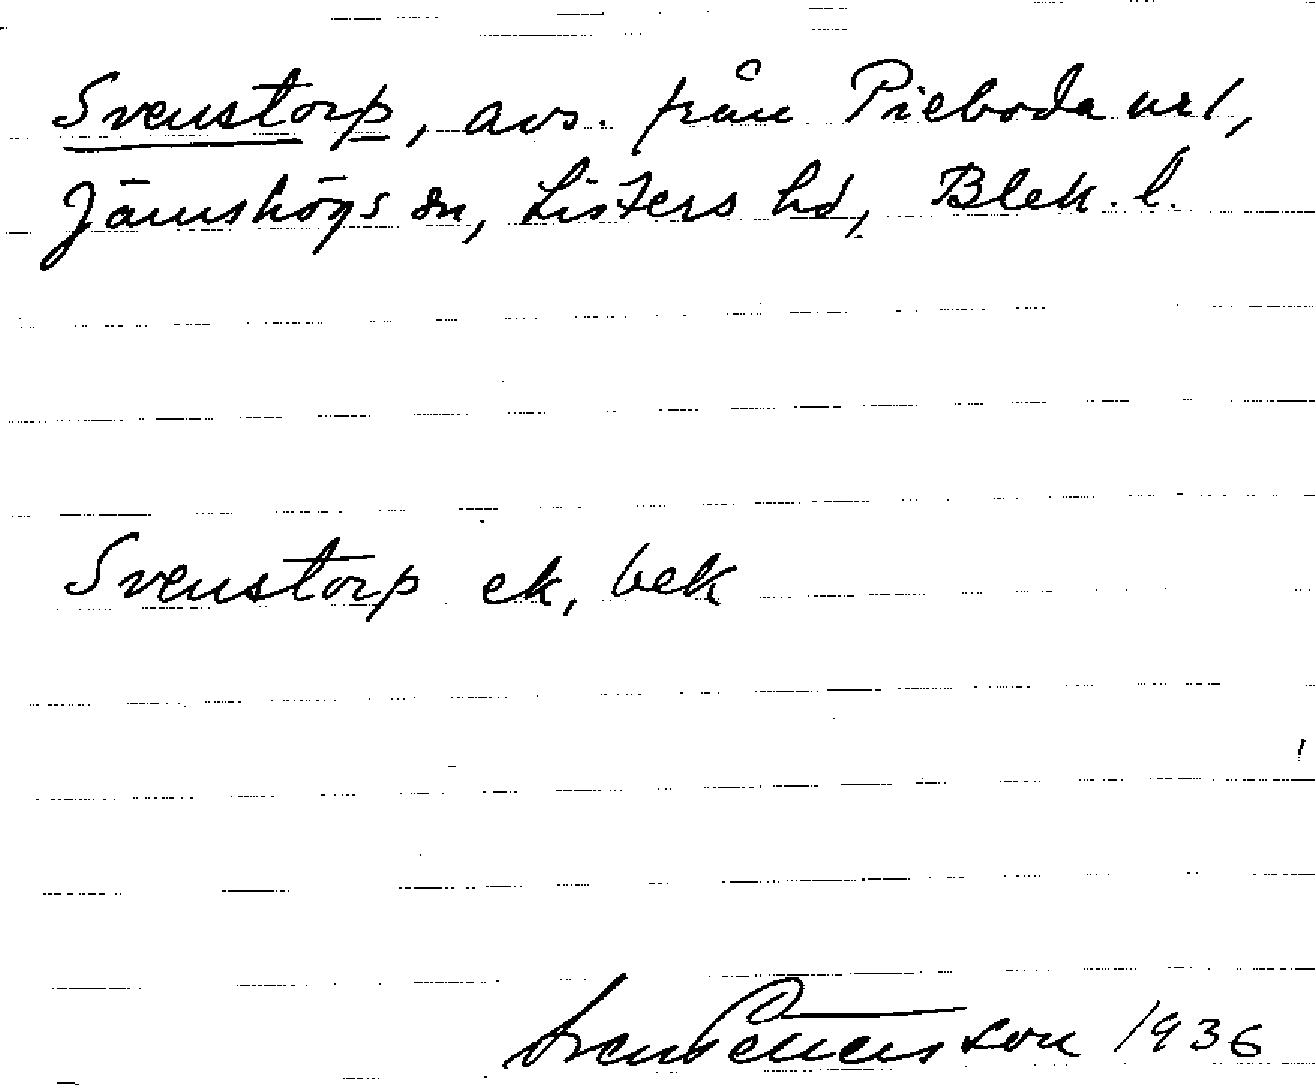 Svenstorp, avs. från Pieboda nr 1,
Jämshögs sn, Listers hd, Blek. l.
Svenstorp ek, bek
Sven Benson 1936